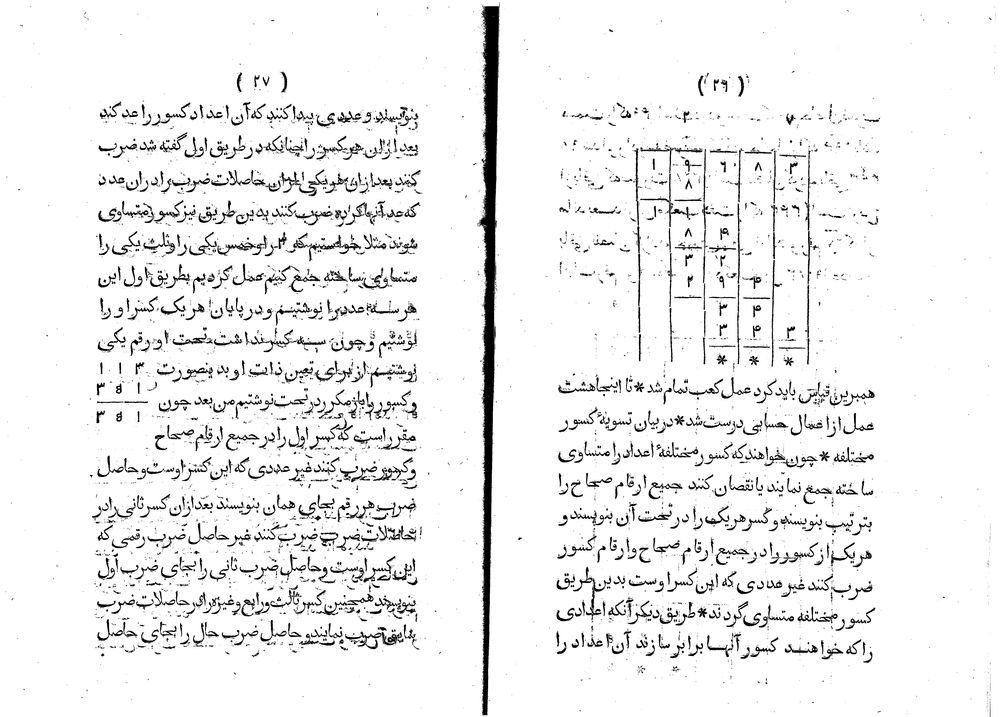 ( ۲۶ )
۱ ۹ ۶ ۸ ۳
۸
۱۰
۸ ۴
۳ ۲
۲ ۹ ۴
۳ ۴
۳ ۴ ۳
* * *
همبرین قیاس باید کرد عمل کعب تمام شد * تا اینجا هشت
عمل از اعمال حسابی درست شد * در بیان تسویهٔ کسور
مختلفه * چون خواهند که کسور مختلفهٔ اعداد را متساوی
ساخته جمع نمایند یا نقصان کنند جمیع ارقام صحاح را
بترتیب بنویسند و کسر هریک را در تحت آن بنویسند و
هریک از کسور را در جمیع ارقام صحاح و ارقام کسور
ضرب کنند غیر عددی که این کسر اوست بدین طریق
کسور مختلفه متساوی گردند * طریق دیگر آنکه اعدادی
را که خواهند کسور آنها برابر سازند آن اعداد را
( ۲۷ )
بنویسند و عددی پیدا کنند که آن اعداد کسور را عد کند
بعد ازان هر کسر را چنانکه در طریق اول گفته شد ضرب
کنند بعد ازان هر یکی ازان حاصلات ضرب را دران عدد
که عد آنها کرده ضرب کنند بدین طریق نیز کسور متساوی
شوند مثلا خواستیم که را و خمس یکی را و ثلث یکی را
متساوی ساخته جمع کنیم عمل کردیم بطریق اول این
هر سه عدد را نوشتیم و در پایان هر یک کسر او را
نوشتیم و چون سه کسر نداشت تحت او رقم یکی
نوشتیم از برای تعین ذات او بدینصورت ۳ ۱ ۱
۱ ۵ ۳
و کسور را باز مکرر در تحت نوشتیم من بعد چون ۱ ۵ ۳
مقرر است که کسر اول را در جمیع ارقام صحاح
و کسور ضرب کنند غیر عددی که این کسر اوست و حاصل
ضرب هر رقم بجای همان بنویسند بعد ازان کسر ثانی را در
حاصلات ضرب ضرب کنند غیر حاصل ضرب رقمی که
این کسر اوست و حاصل ضرب ثانی را بجای ضرب اول
بنویسند همچنین کسر ثالث و رابع و غیره را در حاصلات ضرب
سابق ضرب نمایند و حاصل ضرب حال را بجای حاصل